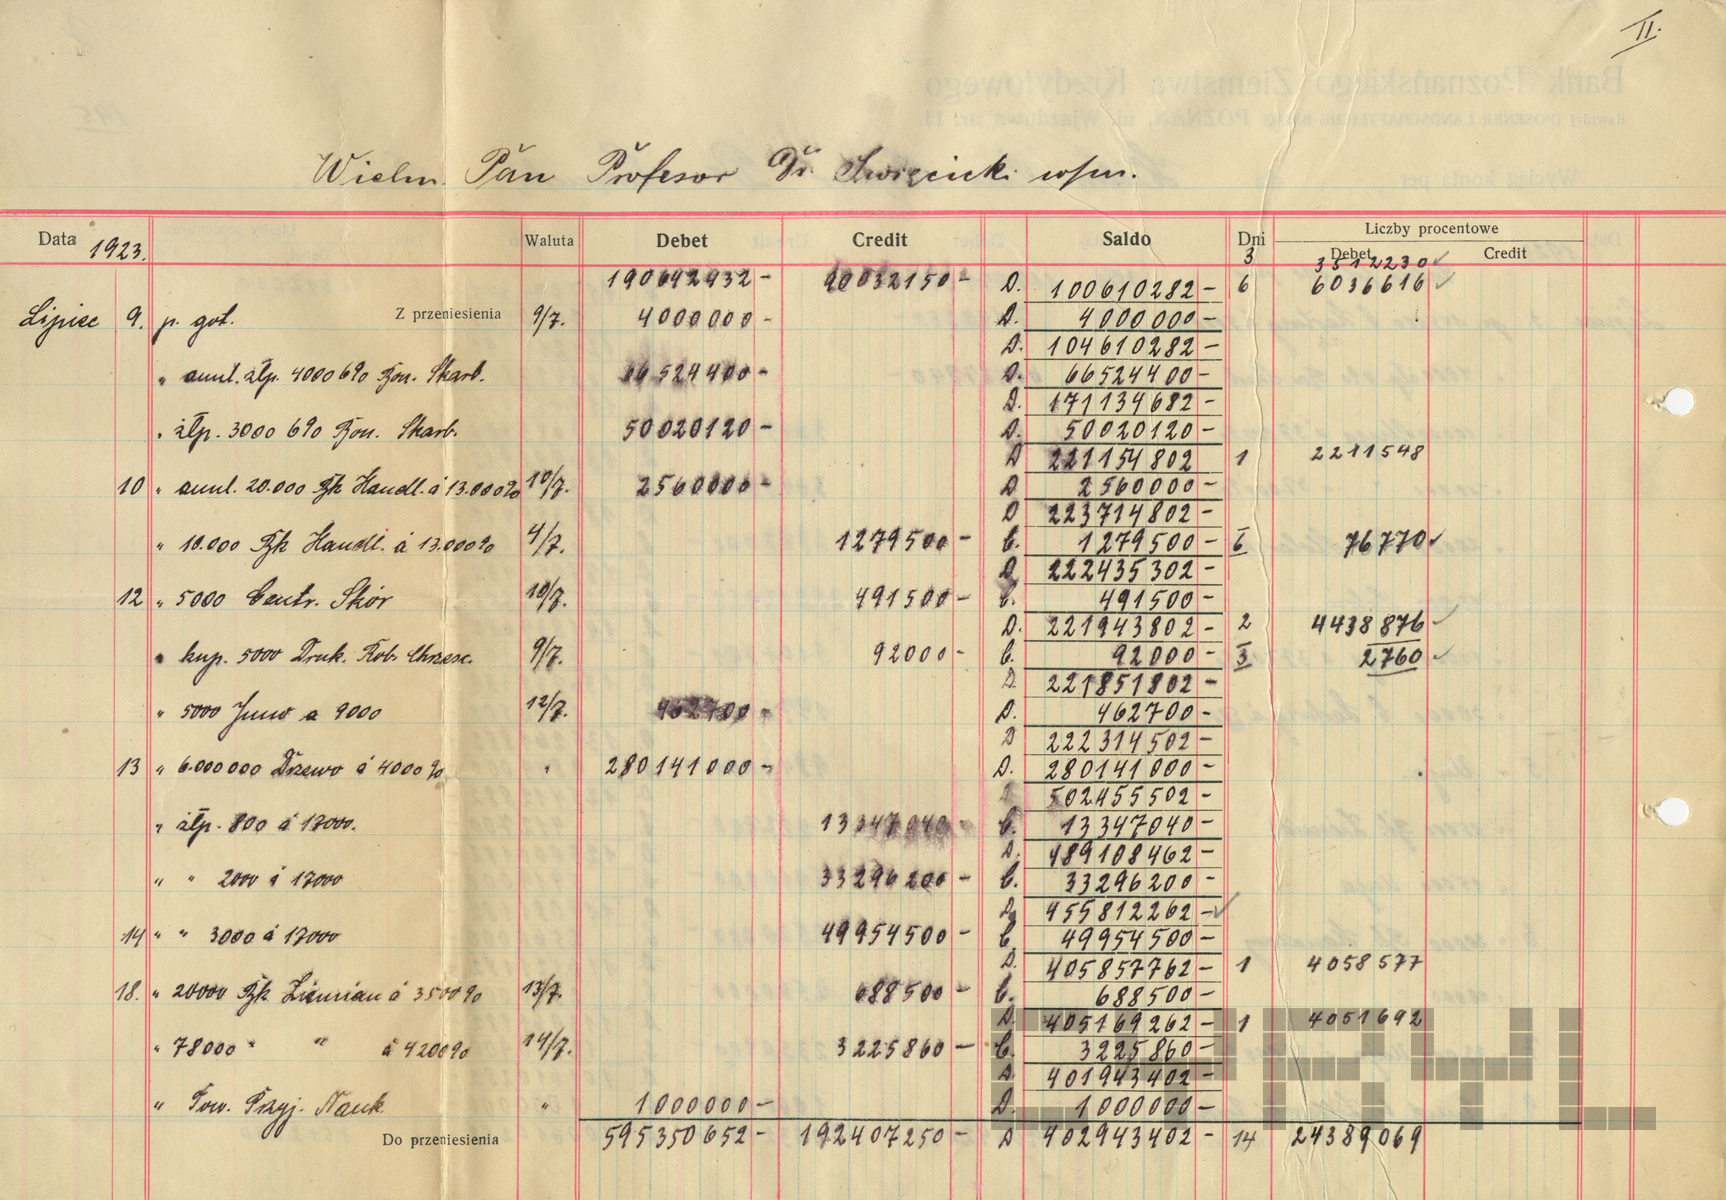 II.
Wielm. Pan Profesor Dr. Święcicki w/m.
Data 1923. Waluta Debet Credit Saldo Dni Liczby procentowe
3 Debet Credit
3512230
190642932 - 90032150 - D. 100610282 - 6 6036616
Lipiec 9. p. got. Z przeniesienia 9/7. 4000000 - D. 4000000 -
D. 104610282 -
" złp. 4000 6% Bon. Skarb. 66524400 - D. 66524400 -
D. 171134682 -
" złp. 3000 6% Bon. Skarb. 50020120 - D. 50020120 -
D 221154802 1 2211548
10 " 20.000 Bk Handl. á 13.000% 10/7. 2560000 - D 2560000 -
D 223714802 -
" 10.000 Bk Handl. á 13.000% 4/7. 1279500 - C. 1279500 - 6 76770
D 222435302 -
12 " 5000 Centr. Skór 10/7. 491500 - C. 491500 -
D. 221943802 - 2 4438876
" kup. 5000 Druk. Rob. Chrzesc. 9/7. 92000 - C. 92000 - 3 2760
D. 221851802 -
" 5000 Juno a 9000 12/7. 462700 - D. 462700 -
D 222314502 -
13 " 6.000000 Drzewo á 4000% " 280141000 - D. 280141000 -
D 502455502 -
" złp. 800 á 17000. 13347040 - C. 13347040 -
D. 489108462 -
" " 2000 á 17000 33296200 - C. 33296200 -
D. 455812262 -
14 " " 3000 á 17000 49954500 - C 49954500 -
D. 405857762 - 1 4058577
18. " 20000 Bk Ziemian á 3500% 13/7. 688500 - C. 688500 -
D. 405169262 - 1 4051692
" 78000 " " á 4200% 14/7. 3225860 - C. 3225860 -
D 401943402 -
" Tow. Przyj. Nauk " 1000000 - D. 1000000 -
Do przeniesienia 595350652 - 192407250 - D 402943402 - 14 24389069